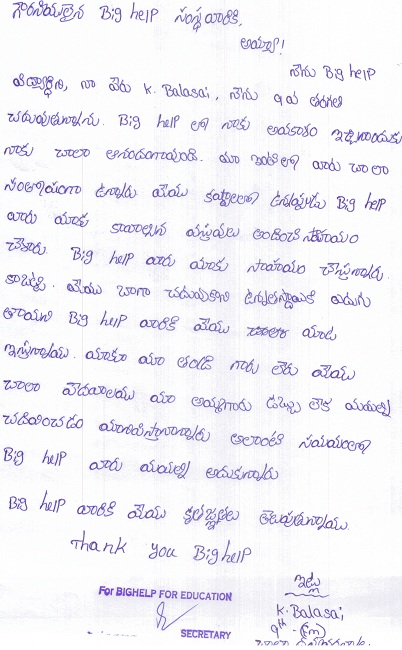 గౌరవనీయులైన Big help సంస్థ వారికి,
అయ్యా!
నేను Big help
విద్యార్థిని, నా పేరు K. Balasai, నేను 9వ తరగతి
చదువుతున్నాను. Big help లో నాకు అవకాశం ఇచ్చినందుకు
నాకు చాలా ఆనందంగావుంది. మా ఇంటిలో వారు చాలా
సంతోషంగా ఉన్నారు మేము కష్టాలలో ఉన్నప్పుడు Big help
వారు మాకు కావాల్సిన వస్తువులు అందించి సహాయం
చేశారు. Big help వారు మాకు సాహాయం చేస్తున్నారు.
కాబట్టి. మేము బాగా చదువుకొని ఉన్నతస్థాయికి
Big help వారికి మేము మాట
ఇస్తున్నాము. మాకు మా తండ్రి గారు లేరు మేము
చాలా పేదవాలము మా అమ్మగారు డబ్బు లేక మమల్ని
చదివించడం అలాంటి సమయంలో
Big help వారు మమల్ని ఆదుకున్నారు
Big help వారికి మేము కృతజ్ఞతలు తెలుపుతున్నాము.
Thank you Big help
ఇట్లు
K. Balasai,
9th - (Em)
For BIGHELP FOR EDUCATION
SECRETARY